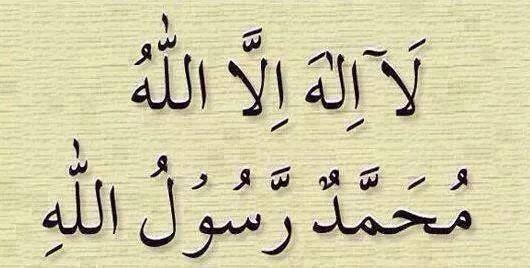 لَآ اِلٰهَ اِلَّا اللّٰهُ
مُحَمَّدٌ رَّسُوْلُ اللّٰهِ